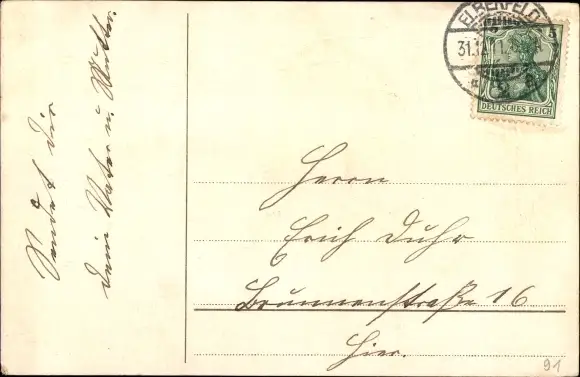 Sendet dir
dein Vater u. Mutter.
ELBERFELD
31.12.11.
5 5
DEUTSCHES REICH
Herrn
Erich Duhr
Brunnenstraße 16
Hier.
91